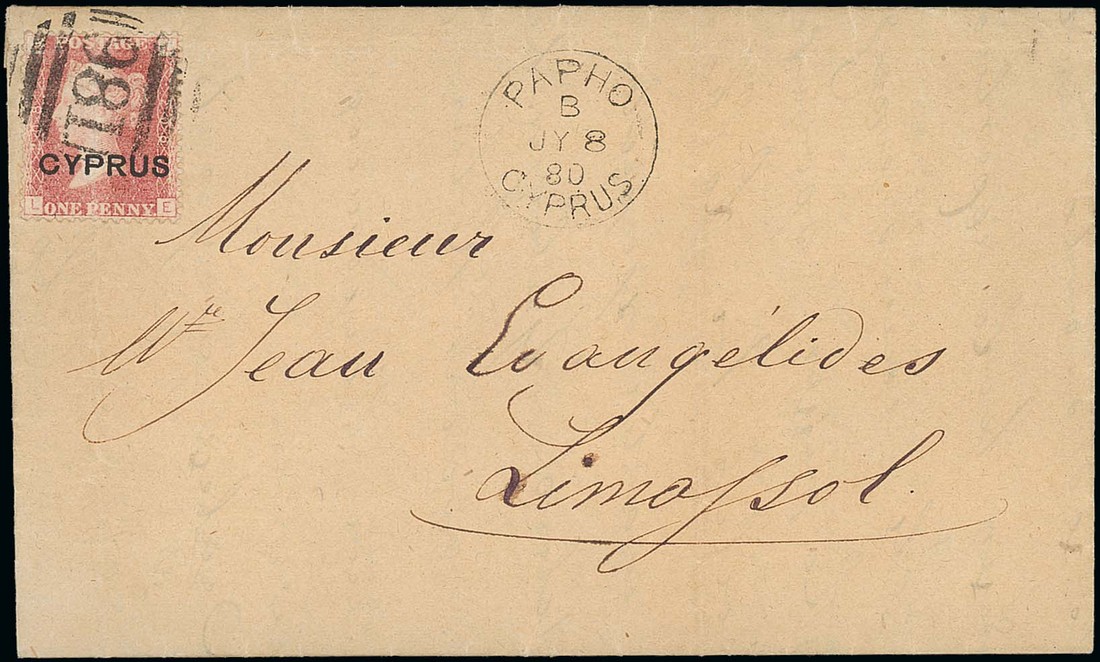 POSTAGE
981
CYPRUS
L ONE PENNY E
PAPHO
B
JY 8
80
CYPRUS
Monsieur
Jean Evangélides
Limassol.